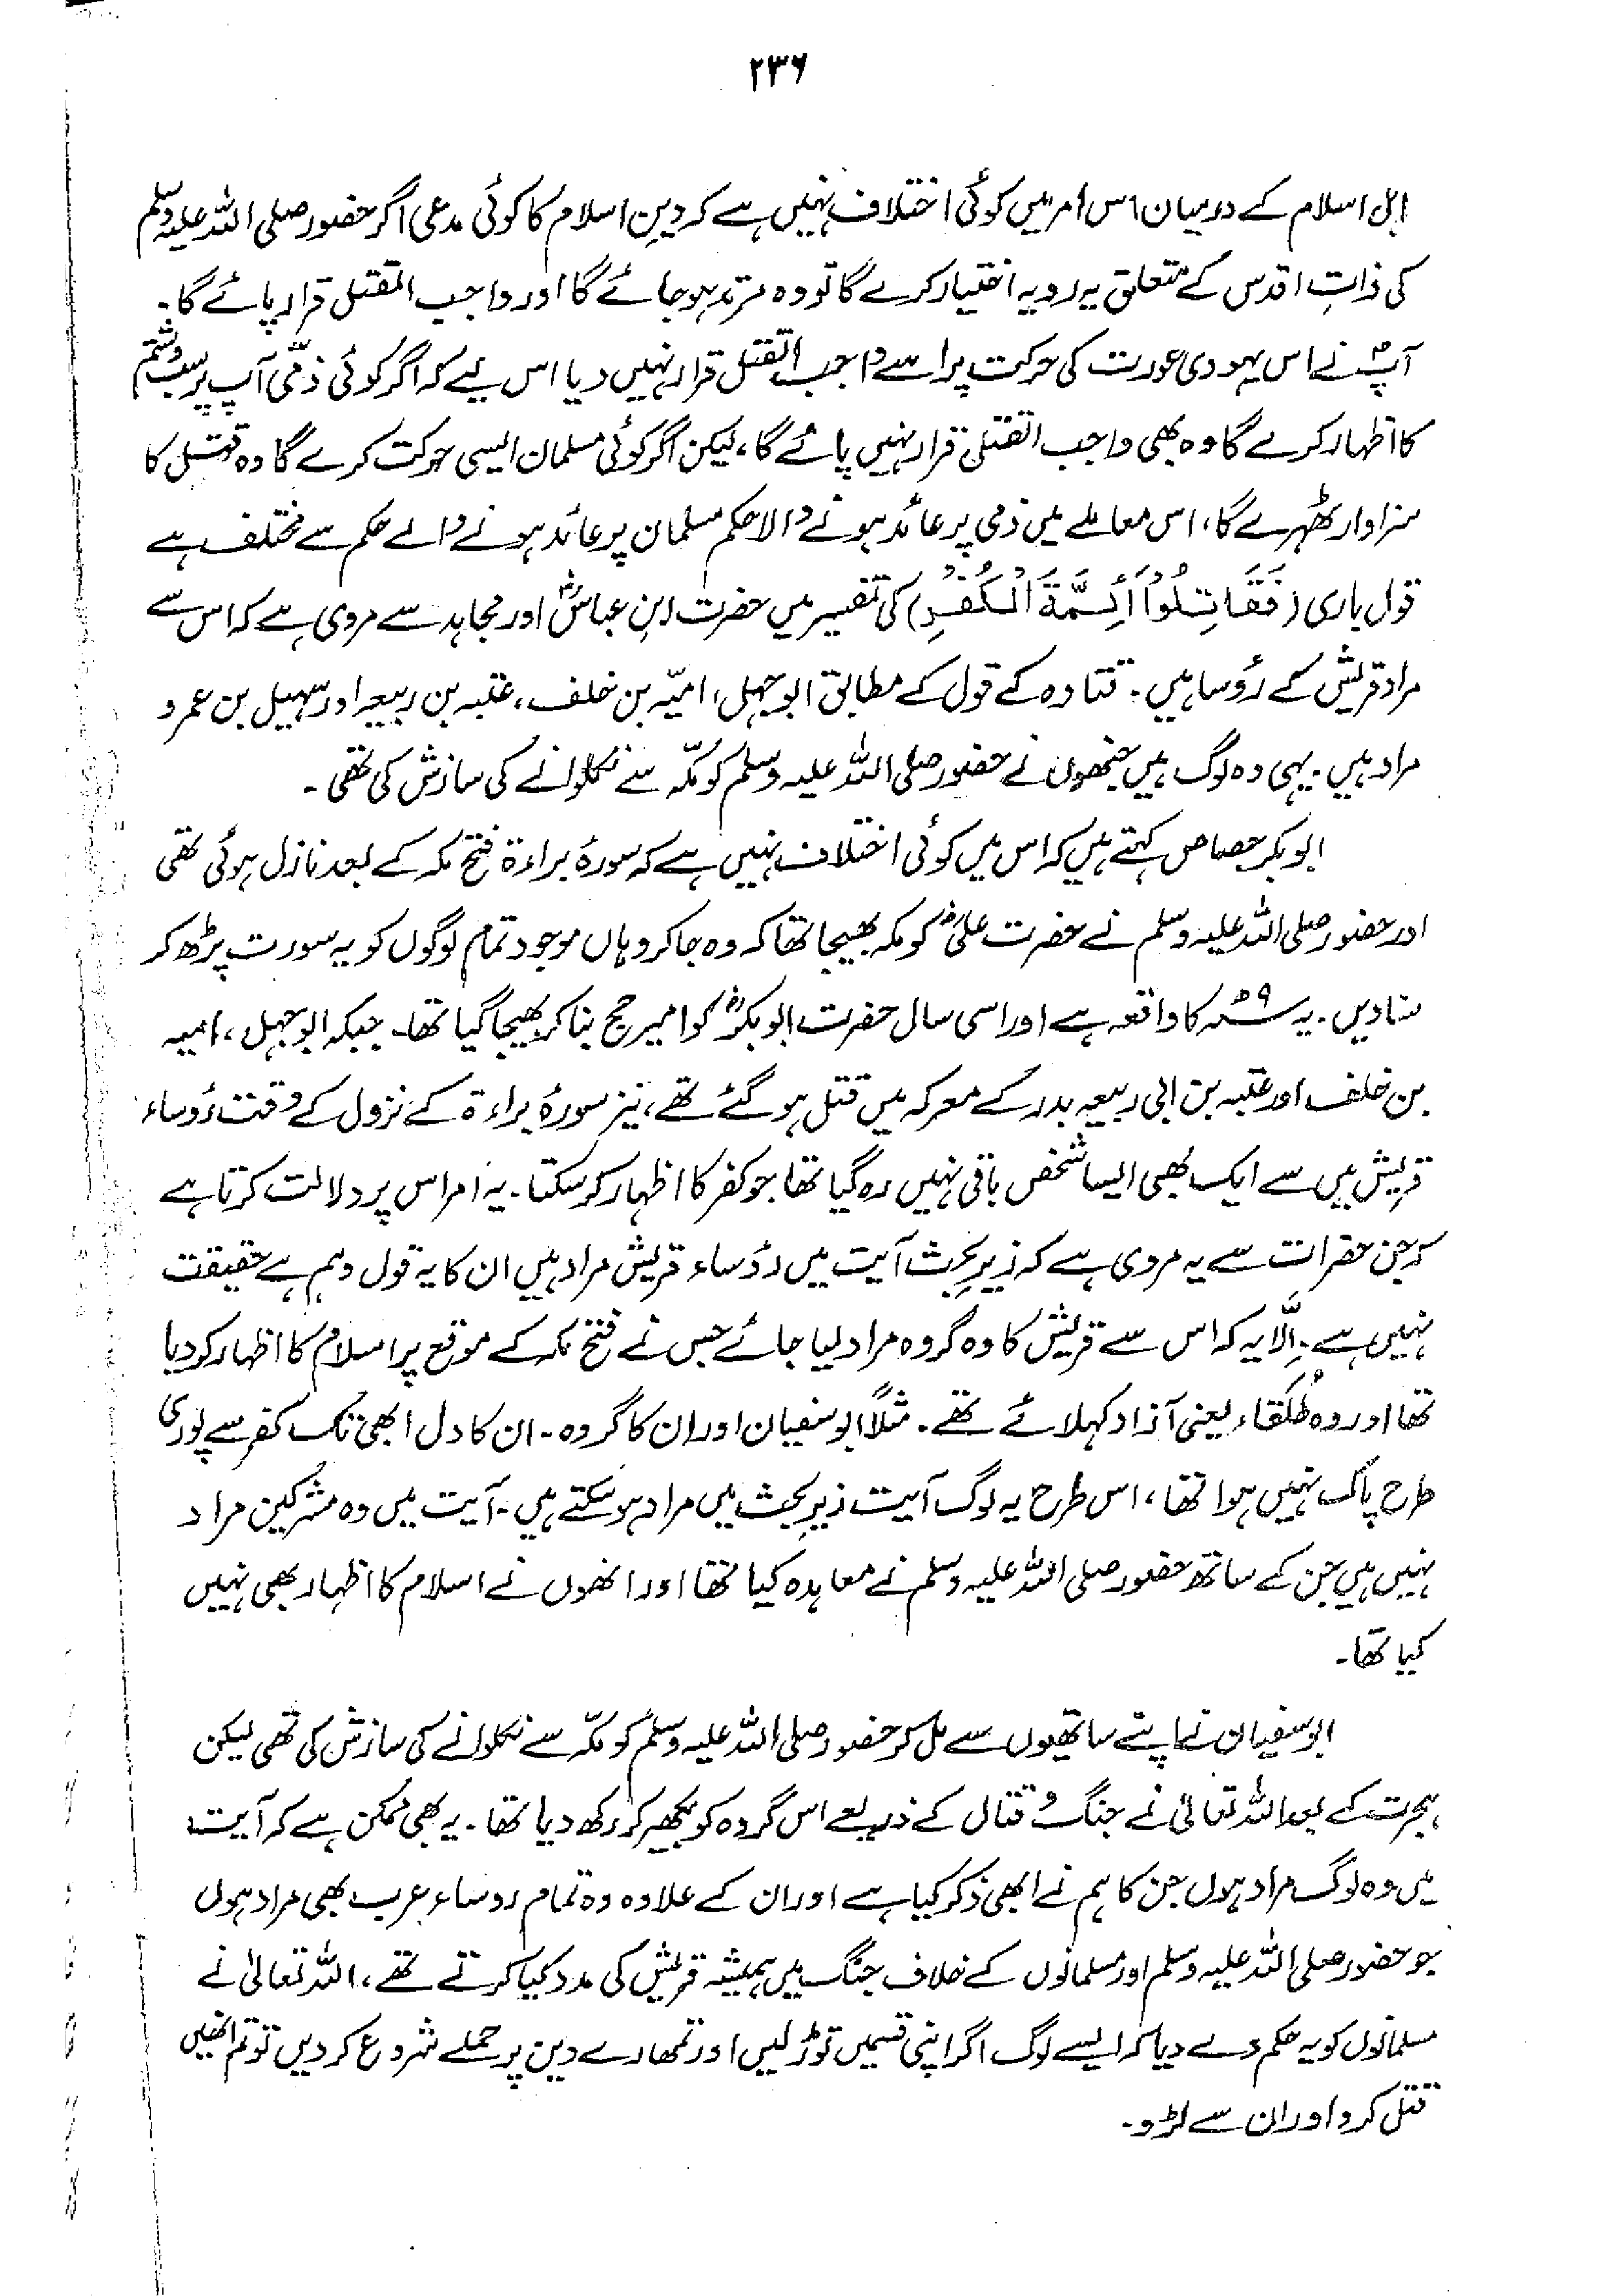 ۲۳۶
اہل اسلام کے درمیان اس امر میں کوئی اختلاف نہیں ہے کہ دین اسلام کا کوئی مدعی اگر حضور صلی اللہ علیہ وسلم
کی ذاتِ اقدس کے متعلق یہ رویہ اختیار کرے گا تو وہ مرتد ہو جائے گا اور واجب القتل قرار پائے گا۔
آپؐ نے اس یہودی عورت کی حرکت پر اسے واجب القتل قرار نہیں دیا اس لیے کہ اگر کوئی ذمّی آپ پر سب وشتم
کا اظہار کرے گا وہ بھی واجب القتل قرار نہیں پائے گا، لیکن اگر کوئی مسلمان ایسی حرکت کرے گا وہ قتل کا
سزاوار ٹھہرے گا، اس معاملے میں ذمی پر عائد ہونے والا حکم مسلمان پر عائد ہونے والے حکم سے مختلف ہے
قول باری (فَقَاتِلُوْا أَئِمَّةَ الْكُفْرِ) کی تفسیر میں حضرت ابنِ عباسؓ اور مجاہد سے مروی ہے کہ اس سے
مراد قریش کے رؤسا ہیں۔ قتادہ کے قول کے مطابق ابوجہل، امیّہ بن خلف، عتبہ بن ربیعہ اور سہیل بن عمرو
مراد ہیں۔ یہی وہ لوگ ہیں جنھوں نے حضور صلی اللہ علیہ وسلم کو مکّہ سے نکلوانے کی سازش کی تھی۔
ابوبکر جصاص کہتے ہیں کہ اس میں کوئی اختلاف نہیں ہے کہ سورۂ براءۃ فتح مکہ کے بعد نازل ہوئی تھی
اور حضور صلی اللہ علیہ وسلم نے حضرت علیؓ کو مکہ بھیجا تھا کہ وہ جا کر وہاں موجود تمام لوگوں کو یہ سورت پڑھ کر
سنادیں۔ یہ ۹ھ کا واقعہ ہے اور اسی سال حضرت ابوبکرؓ کو امیر حج بنا کر بھیجا گیا تھا۔ جبکہ ابوجہل، امیہ
بن خلف اور عتبہ بن ابی ربیعہ بدر کے معرکہ میں قتل ہو گئے تھے، نیز سورۂ براءۃ کے نزول کے وقت رؤساء
قریش میں سے ایک بھی ایسا شخص باقی نہیں رہ گیا تھا جو کفر کا اظہار کر سکتا۔ یہ امر اس پر دلالت کرتا ہے
کہ جن حضرات سے یہ مروی ہے کہ زیرِ بحث آیت میں رؤساء قریش مراد ہیں ان کا یہ قول وہم ہے حقیقت
نہیں ہے۔ اِلّا یہ کہ اس سے قریش کا وہ گروہ مراد لیا جائے جس نے فتح مکہ کے موقع پر اسلام کا اظہار کر دیا
تھا اور وہ طُلَقاء یعنی آزاد کہلائے تھے۔ مثلاً ابوسفیان اور ان کا گروہ۔ ان کا دل ابھی تک کفر سے پوری
طرح پاک نہیں ہوا تھا، اس طرح یہ لوگ آیت زیرِ بحث میں مراد ہو سکتے ہیں۔ آیت میں وہ مشرکین مراد
نہیں ہیں جن کے ساتھ حضور صلی اللہ علیہ وسلم نے معاہدہ کیا تھا اور انھوں نے اسلام کا اظہار بھی نہیں
کیا تھا۔
ابوسفیان نے اپنے ساتھیوں سے مل کر حضور صلی اللہ علیہ وسلم کو مکّہ سے نکلوانے کی سازش کی تھی لیکن
ہجرت کے بعد اللہ تعالیٰ نے جنگ و قتال کے ذریعے اس گروہ کو بکھیر کر رکھ دیا تھا۔ یہ بھی ممکن ہے کہ آیت
میں وہ لوگ مراد ہوں جن کا ہم نے ابھی ذکر کیا ہے اور ان کے علاوہ وہ تمام روساء عرب بھی مراد ہوں
جو حضور صلی اللہ علیہ وسلم اور مسلمانوں کے خلاف جنگ میں ہمیشہ قریش کی مدد کیا کرتے تھے، اللہ تعالیٰ نے
مسلمانوں کو یہ حکم دے دیا کہ ایسے لوگ اگر اپنی قسمیں توڑ لیں اور تمھارے دین پر حملے شروع کر دیں تو تم انھیں
قتل کرو اور ان سے لڑو۔